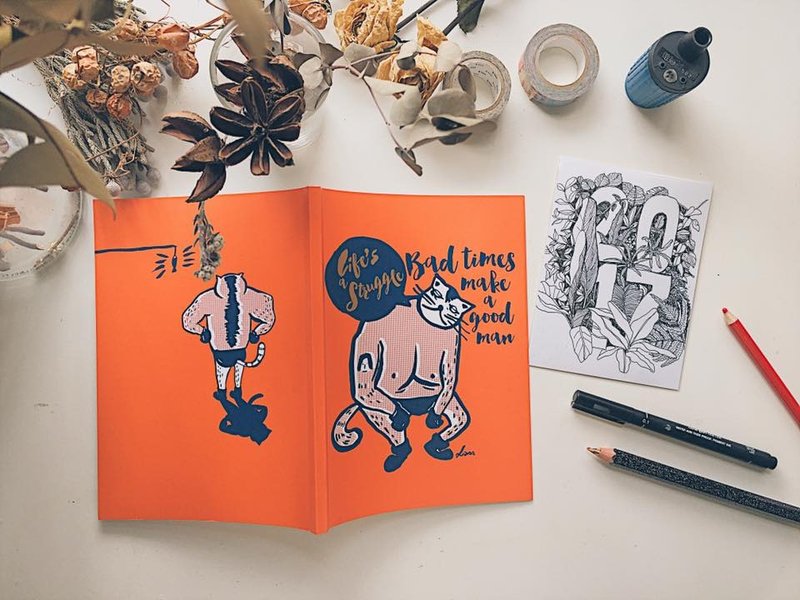 Life's
a
Struggle
Bad times
make
a
good
man
2017
0.1